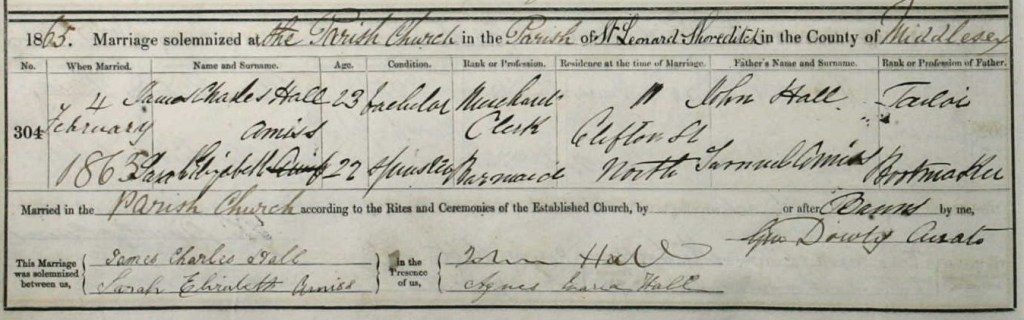 1865. Marriage solemnized at the Parish Church in the Parish of St Leonard Shoreditch in the County of Middlesex
No. When Married. Name and Surname. Age. Condition. Rank or Profession. Residence at the time of Marriage. Father's Name and Surname. Rank or Profession of Father.
304 4 February 1865
James Charles Hall 23 bachelor Merchant Clerk 11 Clifton St North John Hall Tailor
Amiss
Sarah Elizabeth Amiss 22 Spinster Barmaid Samuel Amiss Bootmaker
Married in the Parish Church according to the Rites and Ceremonies of the Established Church, by or after Banns by me,
Geo Dowty Curate
This Marriage was solemnized between us, James Charles Hall
Sarah Elizabeth Amiss
In the Presence of us, John Hall
Agnes Hall